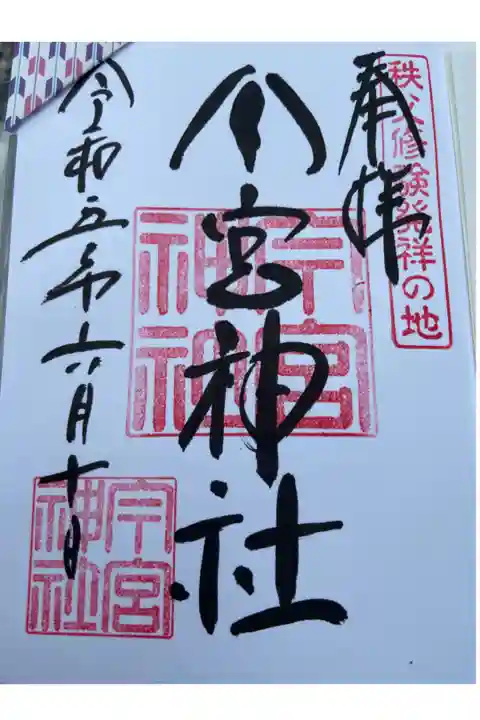 秩父修験発祥の地
奉拝
今宮神社
令和五年六月十日
今宮神社